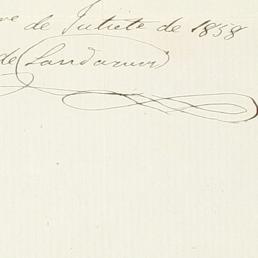 de Juliete de 1858
de Landazuri